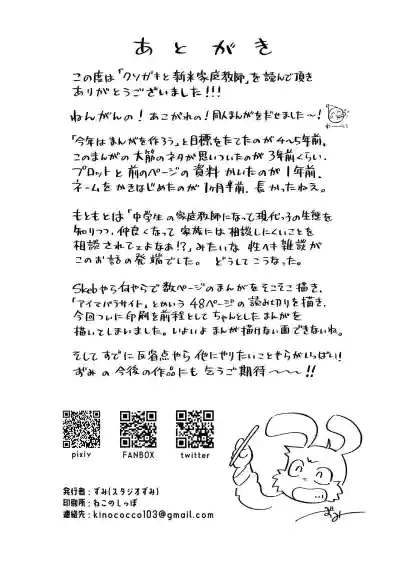 あとがき
この度は「クソガキと新米家庭教師」を読んで頂き
ありがとうございました!!!
ねんがんの!あこがれの!同人まんがをだせました〜!
「今年はまんがを作ろう」と目標をたてたのが4〜5年前。
このまんがの大筋のネタが思いついたのが3年前くらい。
プロットと前のページの資料かいたのが1年前。
ネームをかきはじめたのが1ヶ月半前。長かったねえ。
もともとは「中学生の家庭教師になって現代っ子の生態を
知りつつ、仲良くなって家族には相談しにくいことを
相談されてェよなあ!?」みたいな
このお話の発端でした。どうしてこうなった。
Skebやら何やらで数ページのまんがをそこそこ描き、
「アイマパラサイト」とかいう48ページの読み切りを描き、
今回ついに印刷を前程としてちゃんとしたまんがを
描いてしまいました。いよいよまんが描けない面できないね。
そしてすでに反省点やら他にやりたいことやらがいっぱい!
ずみの今後の作品にも乞うご期待〜〜〜!!
pixiv
FANBOX
twitter
発行者:ずみ(スタジオずみ)
印刷所:ねこのしっぽ
連絡先:kinococco103@gmail.com
ずみ